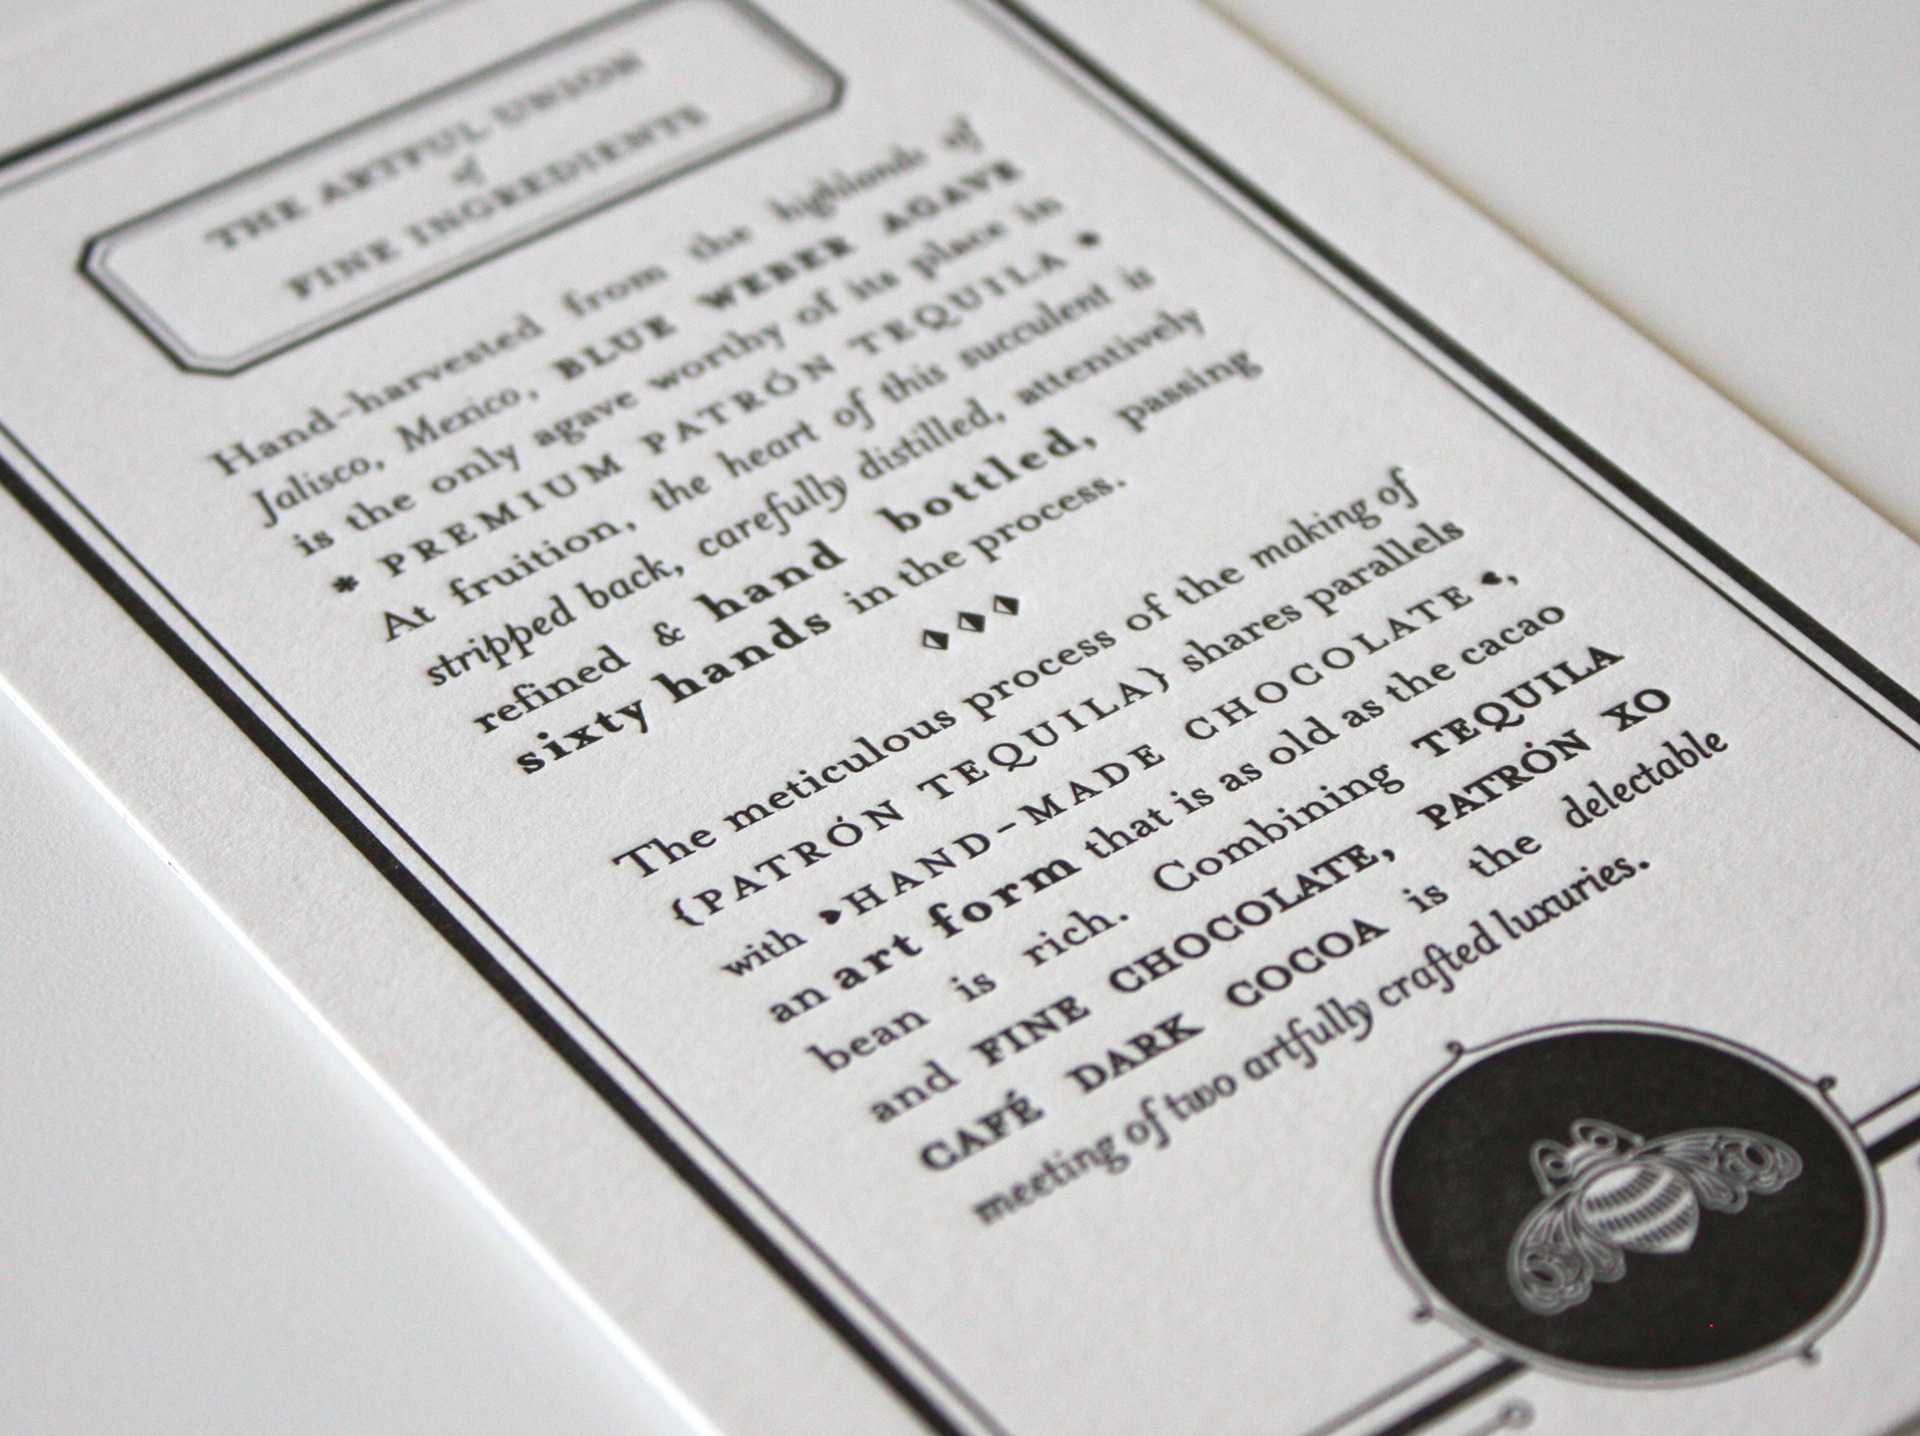 THE ARTFUL UNION
of
FINE INGREDIENTS
Hand-harvested from the highlands of
Jalisco, Mexico, BLUE WEBER AGAVE
is the only agave worthy of its place in
* PREMIUM PATRÓN TEQUILA *
At fruition, the heart of this succulent is
stripped back, carefully distilled, attentively
refined & hand bottled, passing
sixty hands in the process.
The meticulous process of the making of
{PATRÓN TEQUILA} shares parallels
with HAND-MADE CHOCOLATE,
an art form that is as old as the cacao
bean is rich. Combining TEQUILA
and FINE CHOCOLATE, PATRÓN XO
CAFÉ DARK COCOA is the delectable
meeting of two artfully crafted luxuries.